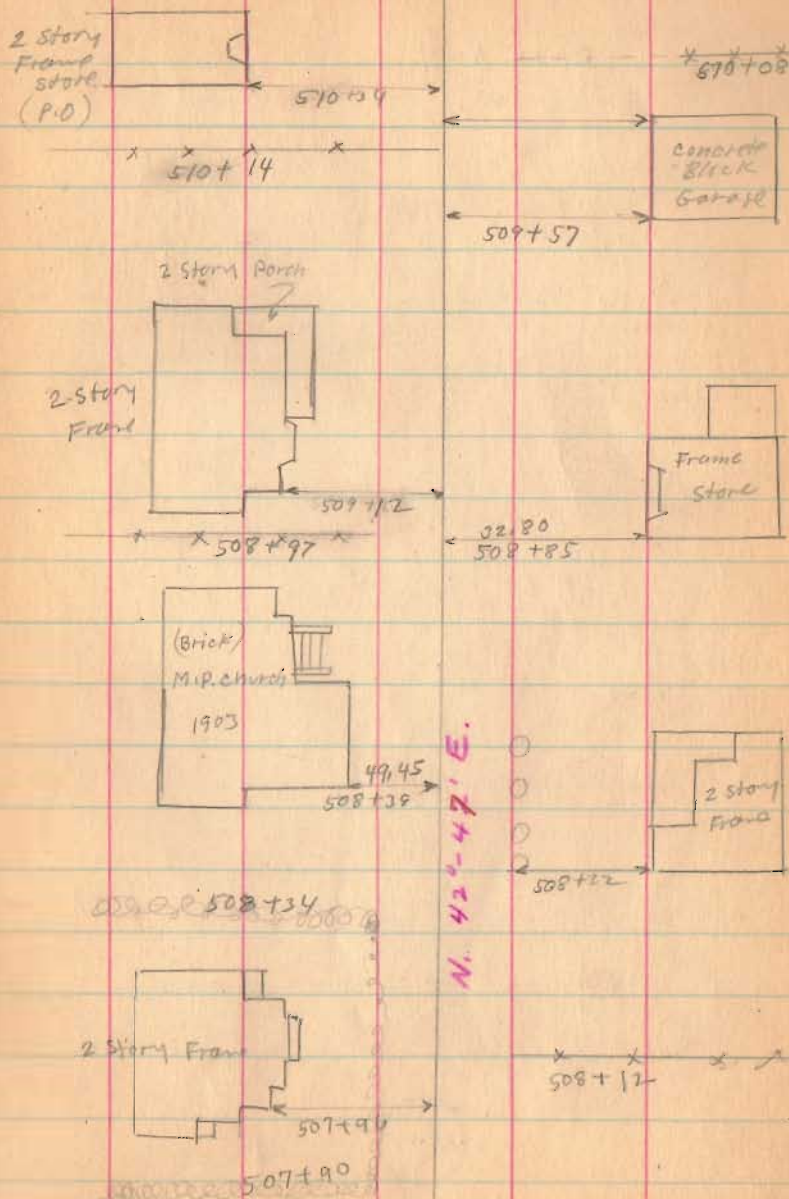 2 Story
Frame
Store
(P.O)
510+34
670+08
510+14
Concrete
Block
Garage
509+57
2 Story Porch
2-Story
Frame
509+12
Frame
Store
32.80
508+85
508+97
(Brick)
M.P. Church
1903
49.45
508+38
N. 42°-47' E.
2 Story
Frame
508+22
508+34
2 Story Frame
508+12
507+96
507+90